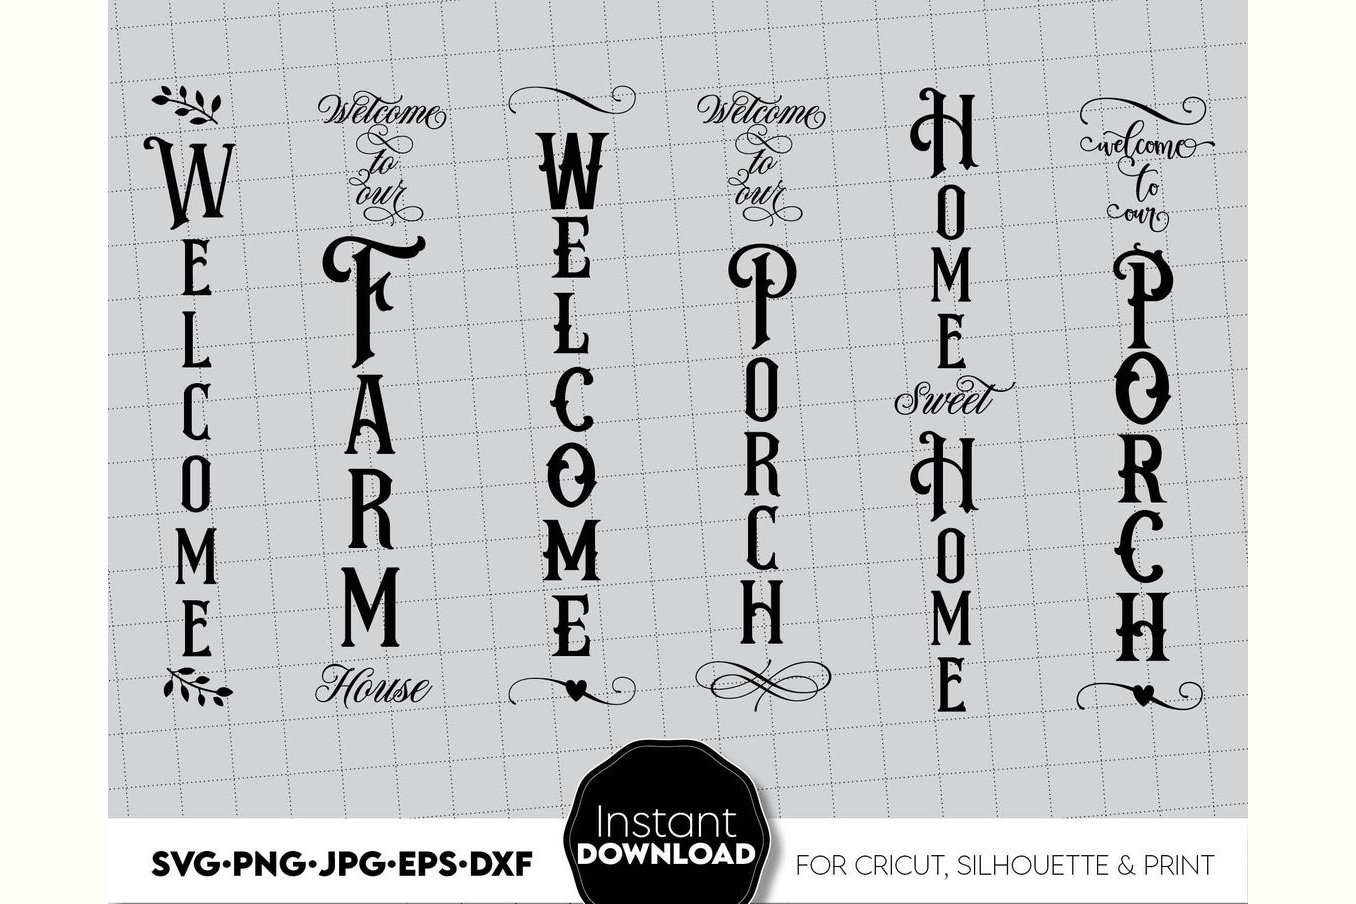 WELCOME
Welcome
to
our
FARM
House
WELCOME
Welcome
to
our
PORCH
HOME
Sweet
HOME
welcome
to
our
PORCH
SVG•PNG•JPG•EPS•DXF
Instant
DOWNLOAD
FOR CRICUT, SILHOUETTE & PRINT